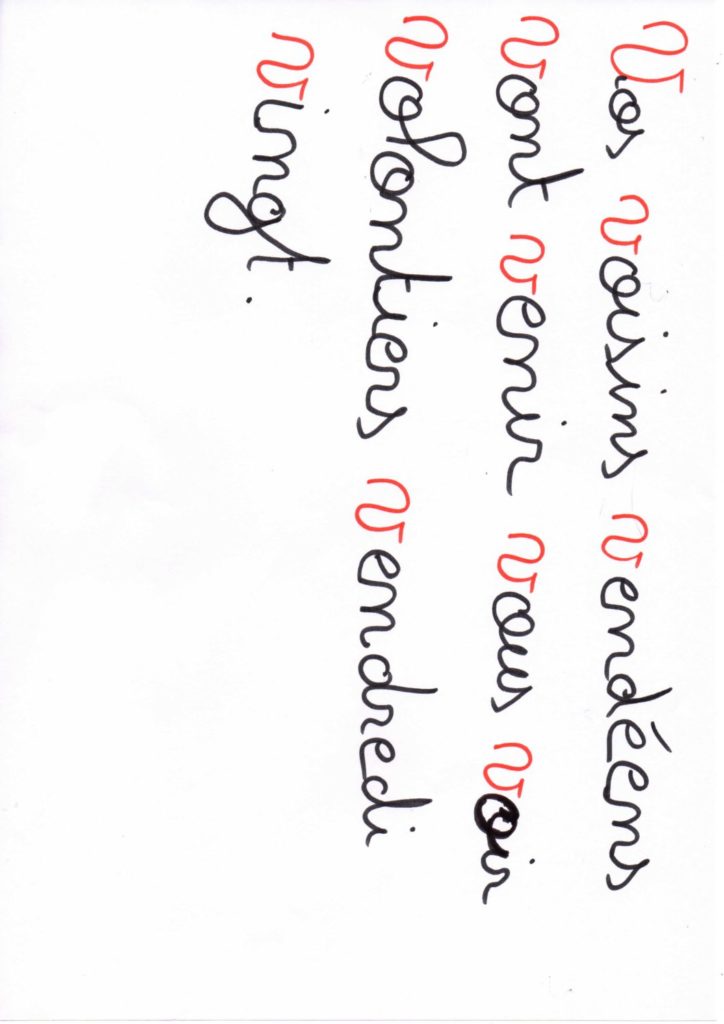 Vos voisins vendéens
vont venir vous voir
volontiers vendredi
vingt.